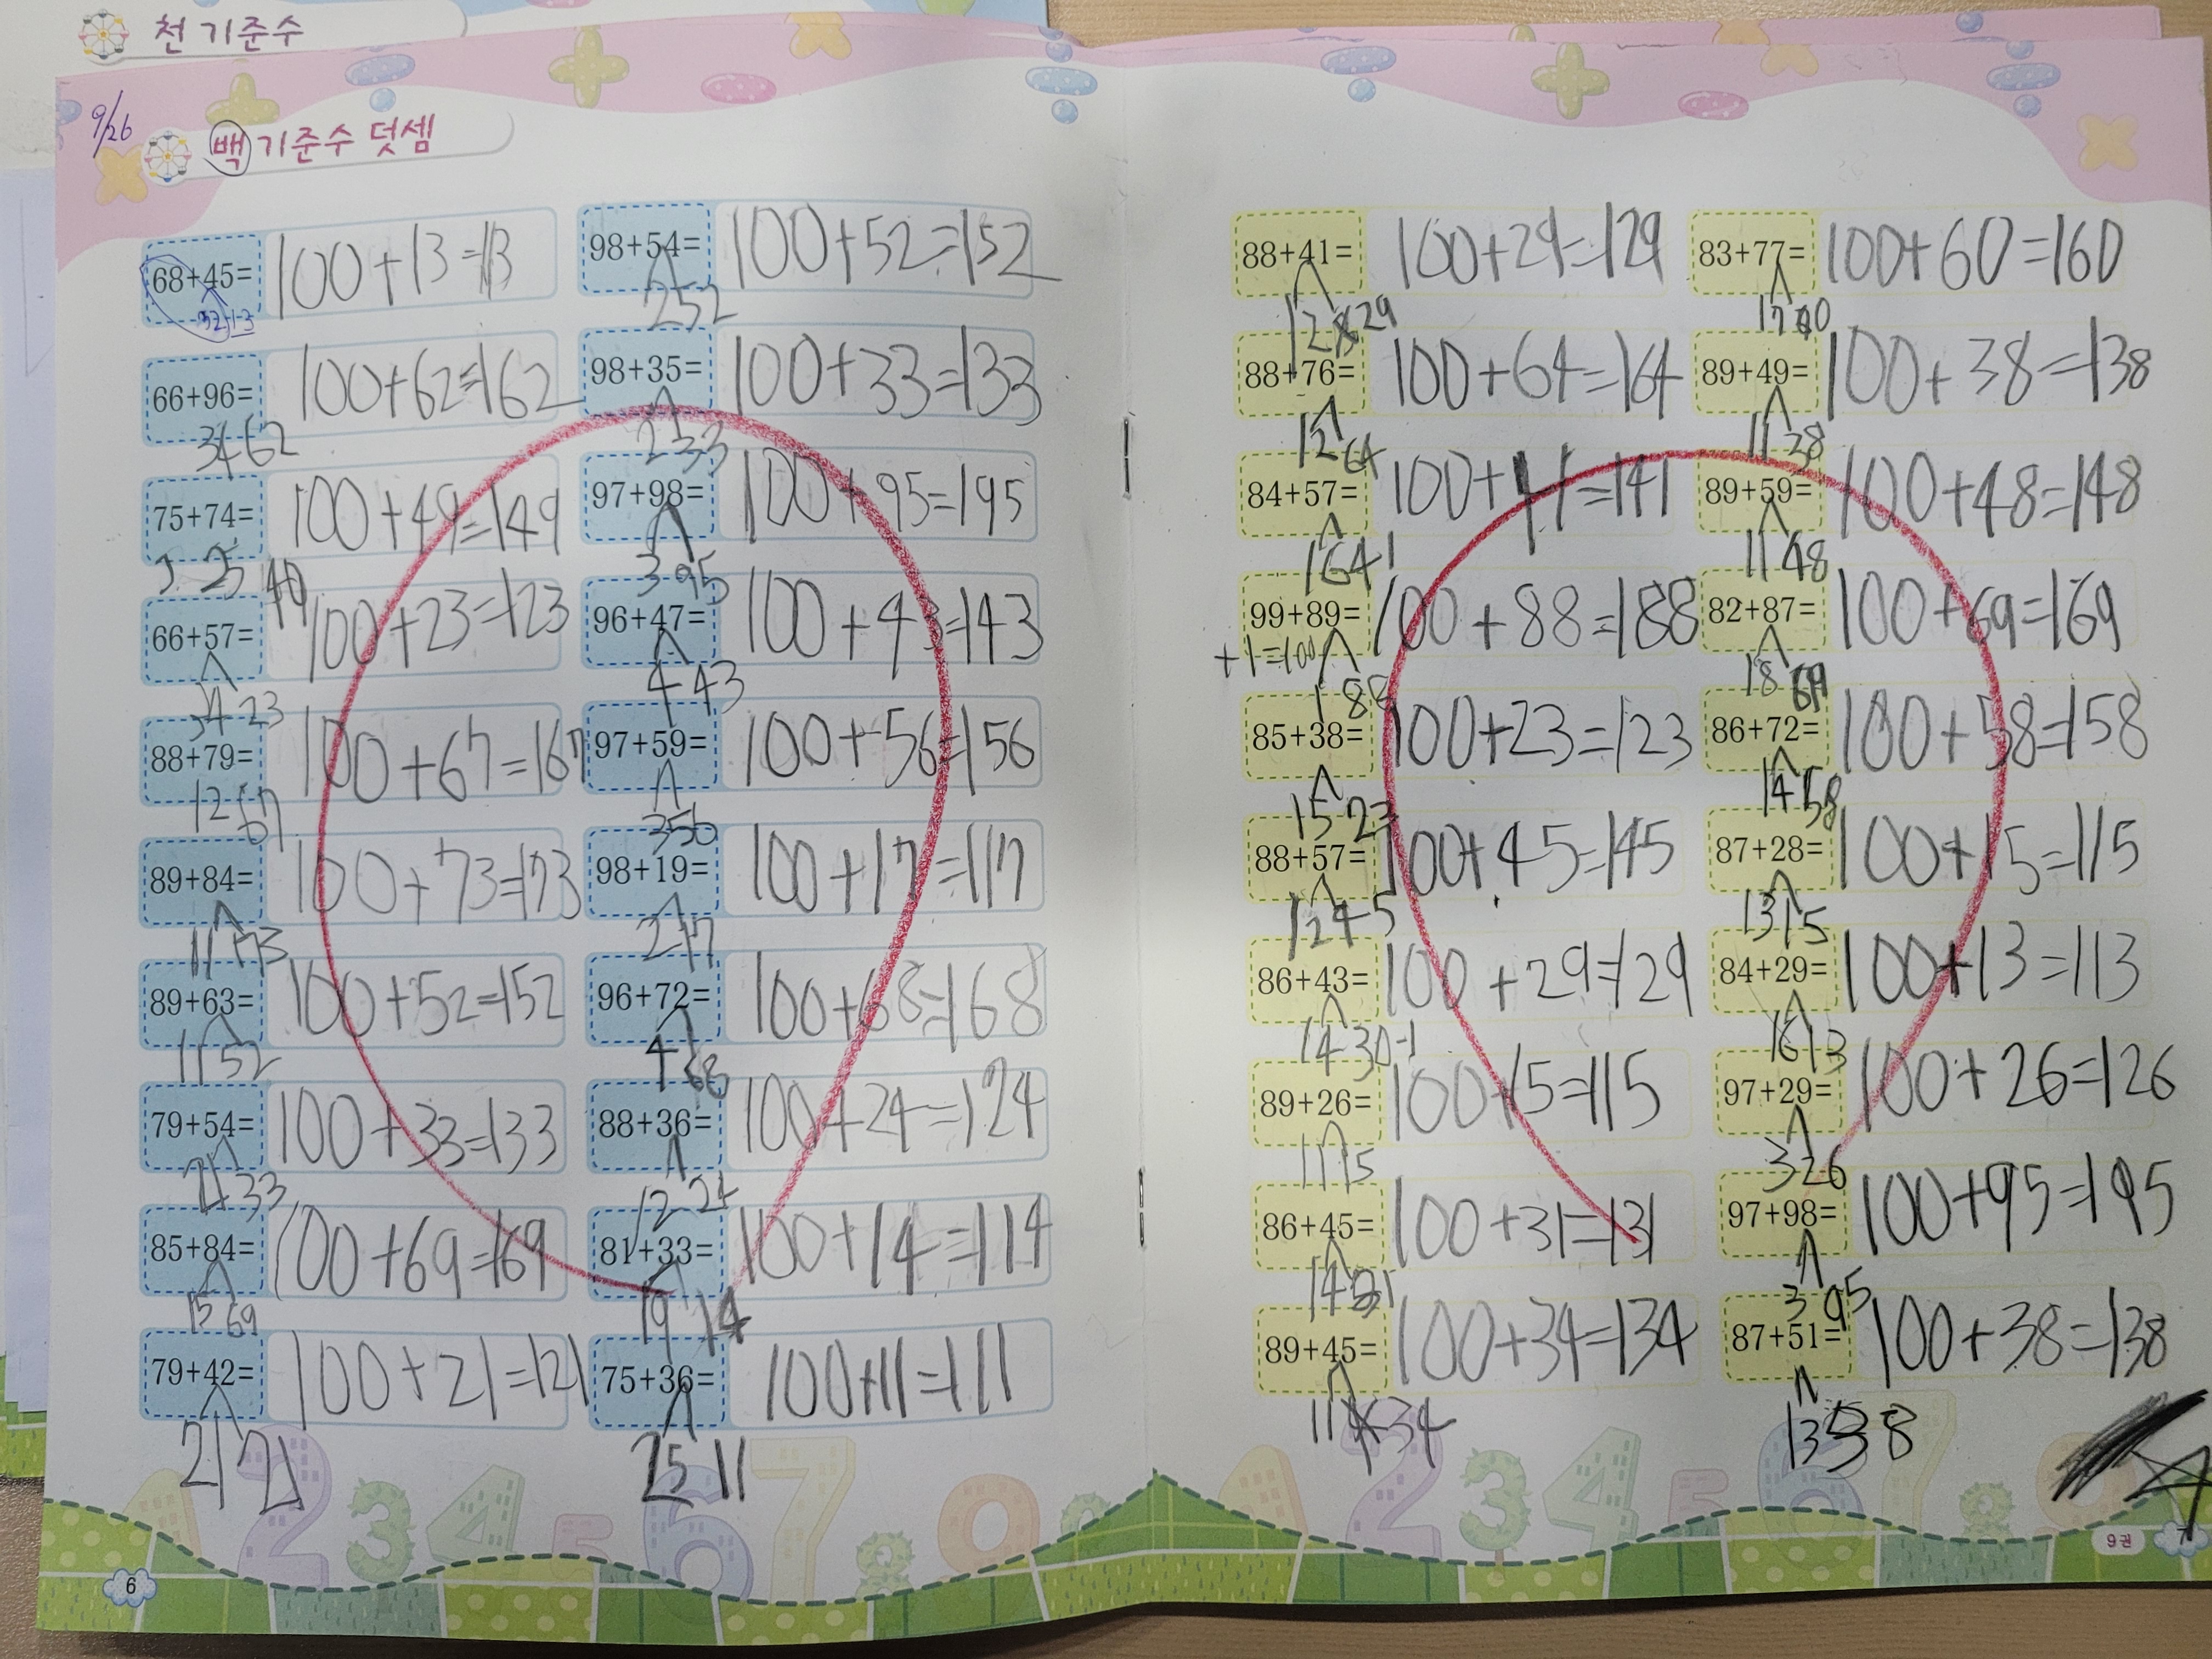 천 기준수
9/26
백 기준수 덧셈
68+45= 100+13=113
32 13
66+96= 100+62=162
34 62
75+74= 100+49=149
25
66+57= 100+23=123
34 23
88+79= 100+67=167
12 67
89+84= 100+73=173
11 73
89+63= 100+52=152
11 52
79+54= 100+33=133
21 33
85+84= 100+69=169
15 69
79+42= 100+21=121
21 21
98+54= 100+52=152
2 52
98+35= 100+33=133
2 33
97+98= 100+95=195
3 95
96+47= 100+43=143
4 43
97+59= 100+56=156
3 56
98+19= 100+17=117
2 17
96+72= 100+68=168
4 68
88+36= 100+24=124
12 24
81+33= 100+14=114
19 14
75+36= 100+11=111
25 11
6
88+41= 100+29=129
12 29
88+76= 100+64=164
12 64
84+57= 100+41=141
16 41
99+89= 100+88=188
+1=100 1 88
85+38= 100+23=123
15 23
88+57= 100+45=145
12 45
86+43= 100+29=129
14 30-1
89+26= 100+15=115
11 15
86+45= 100+31=131
14 31
89+45= 100+34=134
11 34
83+77= 100+60=160
17 60
89+49= 100+38=138
11 38
89+59= 100+48=148
11 48
82+87= 100+69=169
18 69
86+72= 100+58=158
14 58
87+28= 100+15=115
13 15
84+29= 100+13=113
16 13
97+29= 100+26=126
3 26
97+98= 100+95=195
3 95
87+51= 100+38=138
13 38
9권 7